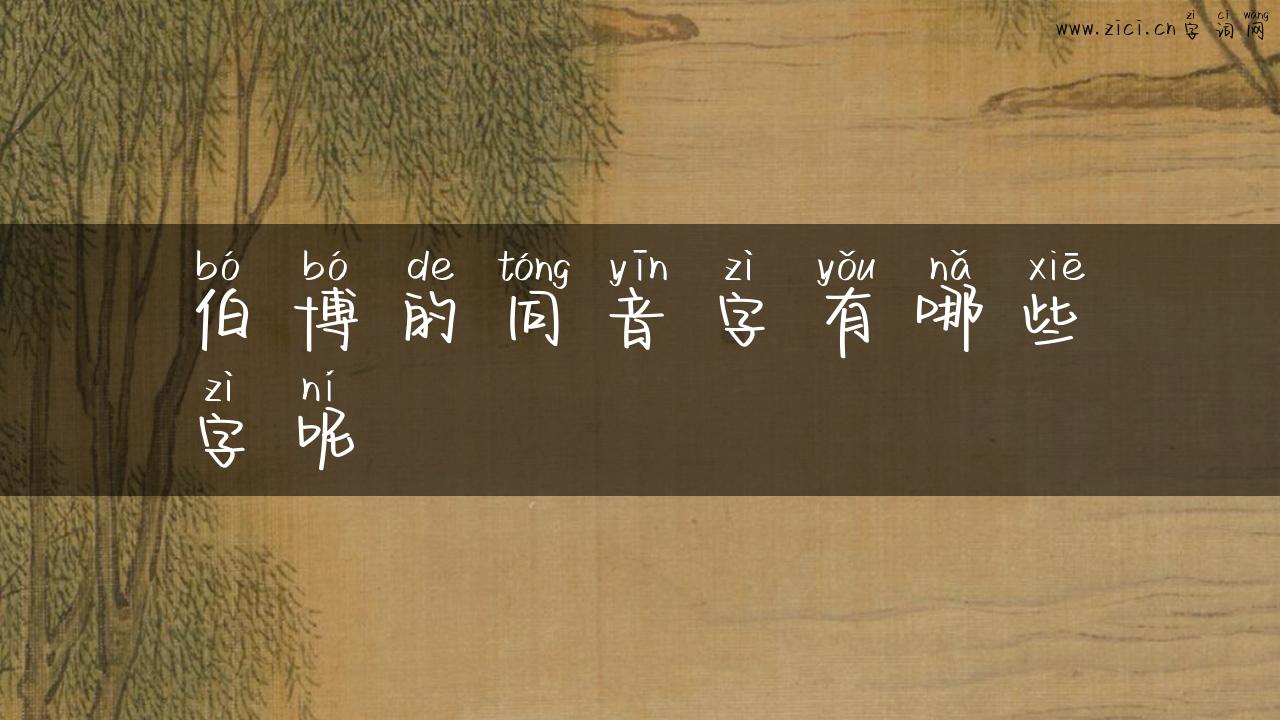 zì cí wǎng
www.zici.cn 字词网
bó bó de tóng yīn zì yǒu nǎ xiē
伯博的同音字有哪些
zì ní
字呢